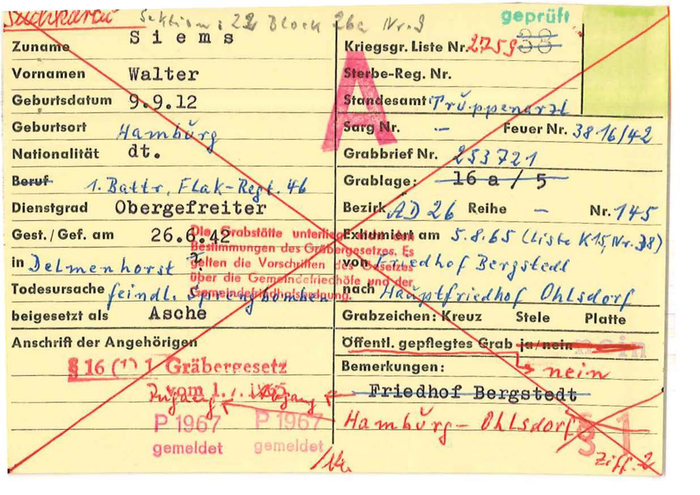 Suchkartei Sektion: 22 Block 26a Nr. 9
geprüft
Zuname Siems
Vornamen Walter
Geburtsdatum 9.9.12
Geburtsort Hamburg
Nationalität dt.
Beruf 1. Battr. Flak-Regt. 46
Dienstgrad Obergefreiter
Gest./Gef. am 26.6.42
in Delmenhorst
Todesursache feindl. Sprengbomben
beigesetzt als Asche
Anschrift der Angehörigen
Die Grabstätte unterliegt nicht den
Bestimmungen des Gräbergesetzes. Es
gelten die Vorschriften des Gesetzes
über die Gemeindefriedhöfe und der
§ 16 (1) 1 Gräbergesetz
vom 1.1.1965
Zugang Abgang
P 1967 P 1967
gemeldet gemeldet
A
Kriegsgr. Liste Nr. 2759 38
Sterbe-Reg. Nr.
Standesamt Truppenarzt
Sarg Nr. – Feuer Nr. 3816/42
Grabbrief Nr. 253721
Grablage: 16 a / 5
Bezirk AD 26 Reihe – Nr. 145
Exhumiert am 5.8.65 (Liste K15, Nr. 38)
von Friedhof Bergstedt
nach Hauptfriedhof Ohlsdorf
Grabzeichen: Kreuz Stele Platte
Öffentl. gepflegtes Grab ja/nein nein
Bemerkungen: nein
Friedhof Bergstedt
Hamburg-Ohlsdorf
§ 1
Ziff. 2